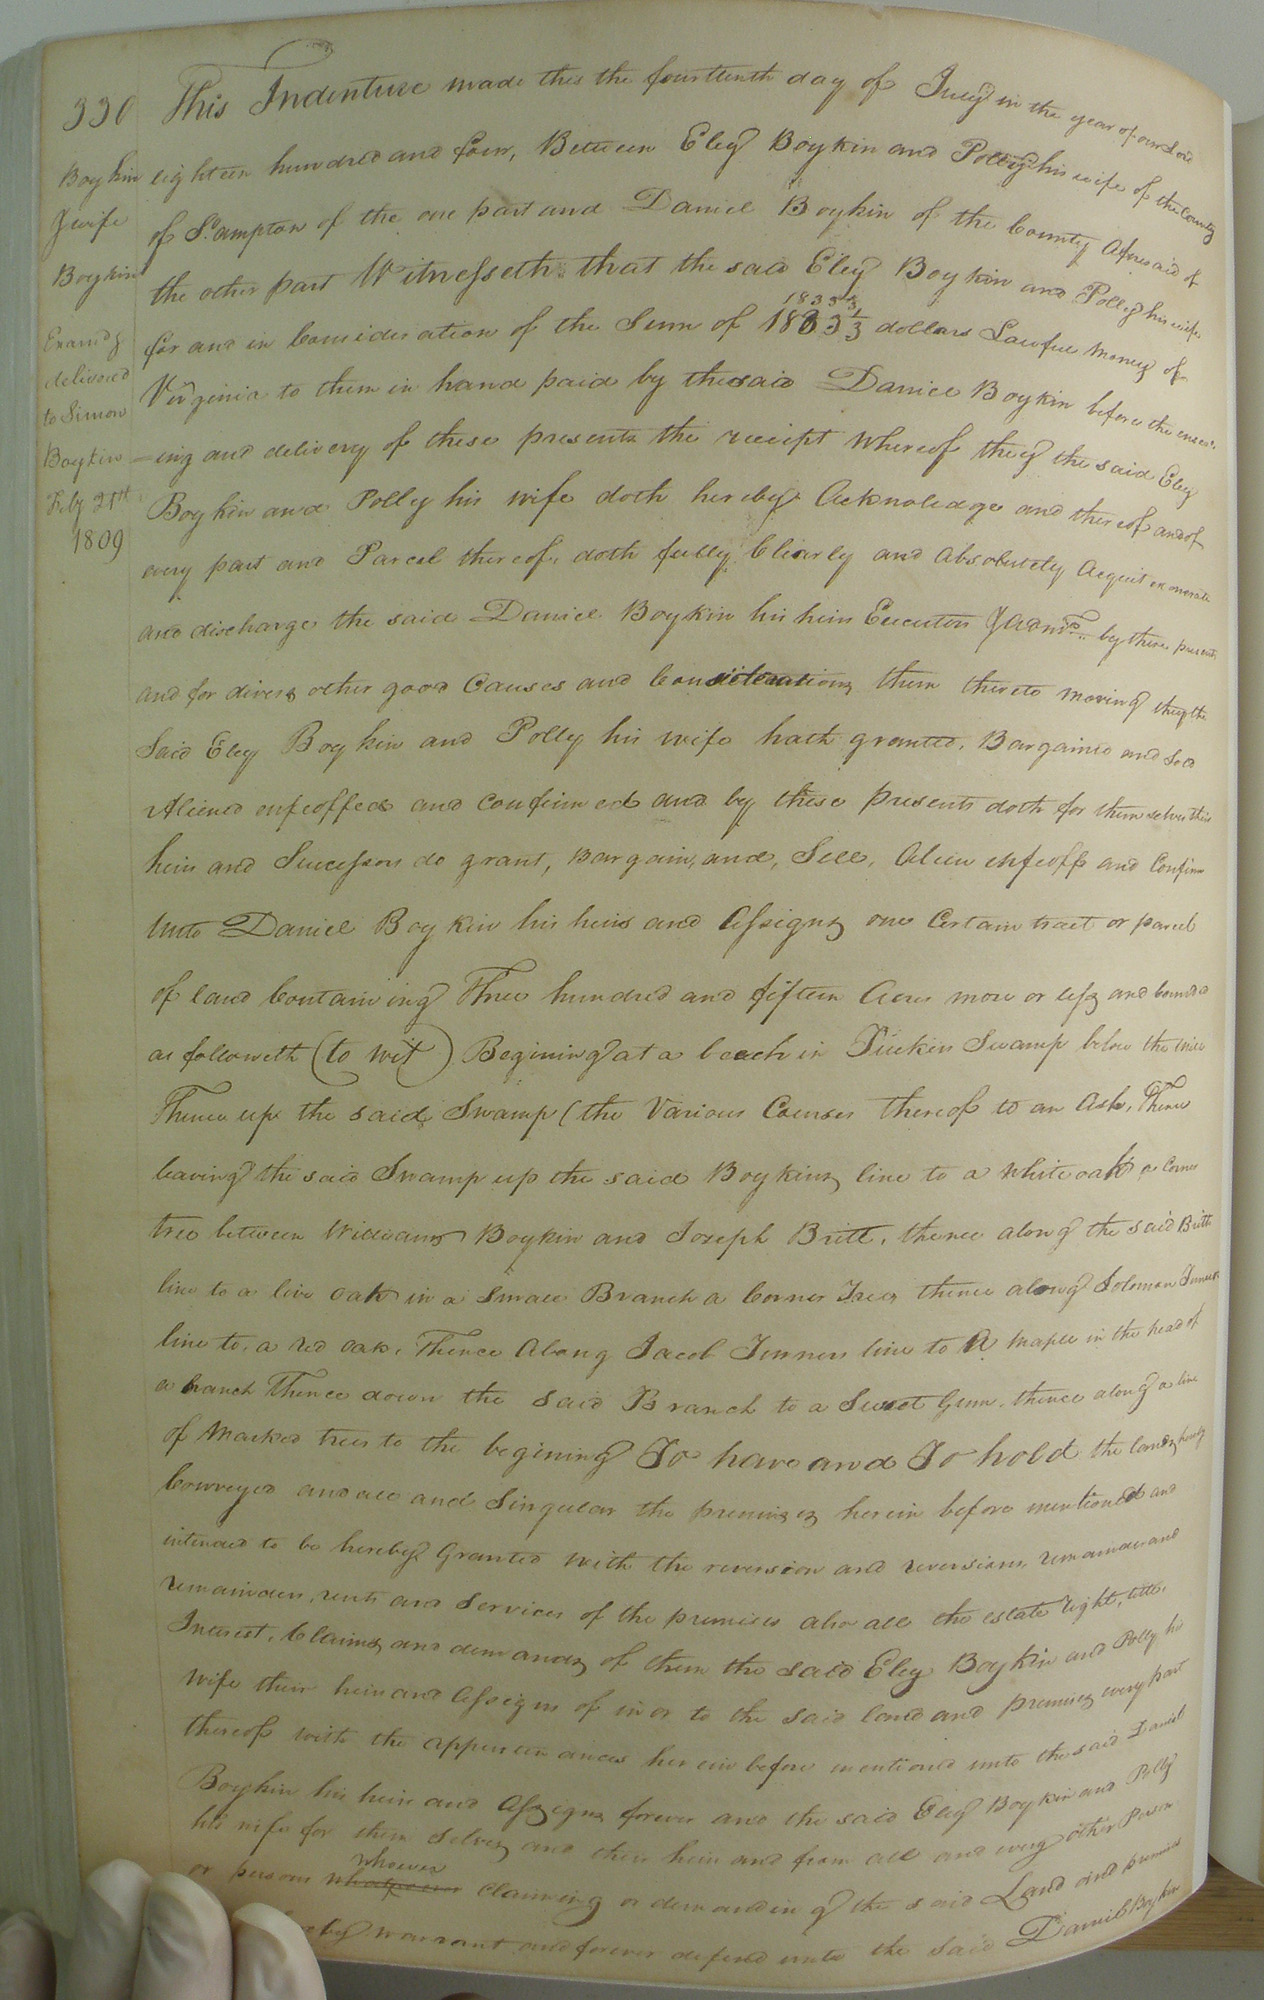 330
Boykin
& wife
Boykin
Examd &
delivered
to Simon
Boykin
Feby 21st
1809
This Indenture made this the fourttenth day of July in the year of our Lord
eighteen hundred and four, Between Eley Boykin and Polly his wife of the County
of S:ampton of the one part and Daniel Boykin of the County Aforesaid of
the other part Witnesseth that the said Eley Boykin and Polly his wife
1833 1/3
for and in Consideration of the Sum of 1833 1/3 dollars Lawful Money of
Virginia to them in hand paid by the said Daniel Boykin before the enseal
=ing and delivery of these presents the receipt Whereof they the said Eley
Boykin and Polly his wife doth hereby Acknoledge and thereof and of
every part and Parcel thereof, doth fully Clearly and Absolutely Acquit exonerate
and discharge the said Daniel Boykin his heirs Executors & Admrs. by these presents
and for divers other good Causes and Considerations them thereto moving they the
Said Eley Boykin and Polly his wife hath granted, Bargained and Sold
Aliened enfeoffed and confirmed and by these presents doth for themselves their
heirs and Successors do grant, Bargain, and, Sell, Alien enfeoff and Confirm
Unto Daniel Boykin his heirs and Assigns one Certain tract or parcel
of land Containing Three hundred and fifteen Acres more or less and bounded
as followeth (to wit) Begining at a beech in Swamp below the
Thence up the said Swamp (the Various Courses thereof to an Ash, Thence
leaving the said Swamp up the said Boykins line to a White oak a Corner
tree between Williams Boykin and Joseph Britt, thence along the said Britts
line to a live oak in a Small Branch a Corner Tree, thence along Solomon
line to, a red oak, Thence Along Jacob Turners line to A Maple in the head of
a branch Thence down the said Branch to a Sweet Gum, thence along a line
of Marked trees to the begining To have and To hold the lands hereby
Conveyed and all and Singular the premises herein before mentioned and
intended to be hereby Granted with the reversion and reversions, remainder and
remainders, rents and Services of the premises also all the estate right, title,
Interest, Claims and demands of them the said Eley Boykin and Polly his
wife their heirs and Assigns of in or to the said land and premises every part
thereof with the appurtenances herein before mentioned unto the said Daniel
Boykin his heirs and Assigns forever and the said Eley Boykin and Polly
his wife for them Selves and their heirs and from all and every other Person
whoever
or persons whatsoever claiming or demanding the said Land and premises
warrant and forever defend unto the said Daniel Boykin